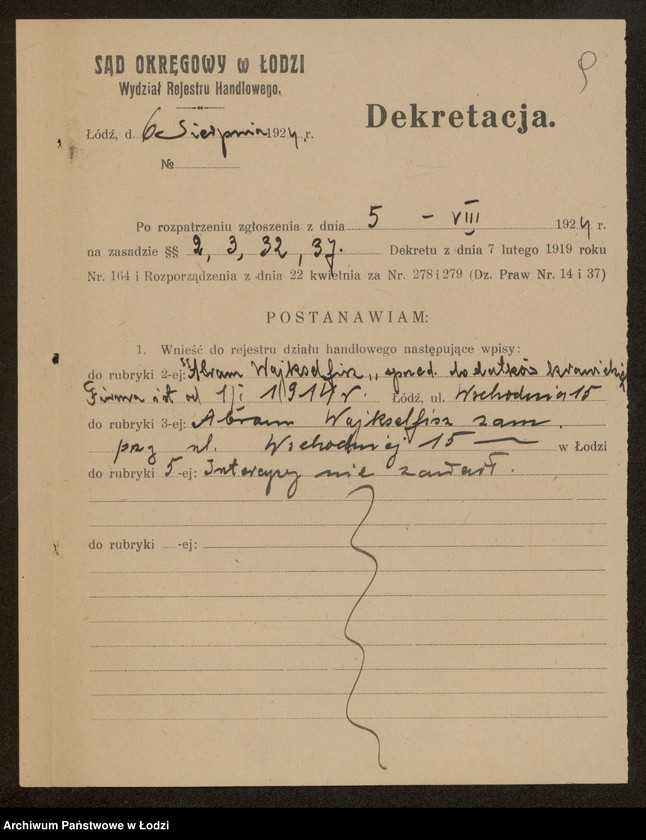 SĄD OKRĘGOWY w ŁODZI
Wydział Rejestru Handlowego,
9
Dekretacja.
Łódź, d. 6 Sierpnia 1924 r.
№
Po rozpatrzeniu zgłoszenia z dnia 5 - VIII 1924 r.
na zasadzie §§ 2, 3, 32, 37. Dekretu z dnia 7 lutego 1919 roku
Nr. 164 i Rozporządzenia z dnia 22 kwietnia za Nr. 278 i 279 (Dz. Praw Nr. 14 i 37)
POSTANAWIAM:
1. Wnieść do rejestru działu handlowego następujące wpisy:
do rubryki 2-ej: "Abram Wajkselfisz„ sprzed. dodatków krawieckich
Firma ist od 1/I 1914 r. Łódź, ul. Wschodnia 15
do rubryki 3-ej: Abram Wajkselfisz zam.
przy ul. Wschodniej 15 — w Łodzi
do rubryki 5-ej: Intercyzy nie zawarł.
do rubryki -ej:
Archiwum Państwowe w Łodzi